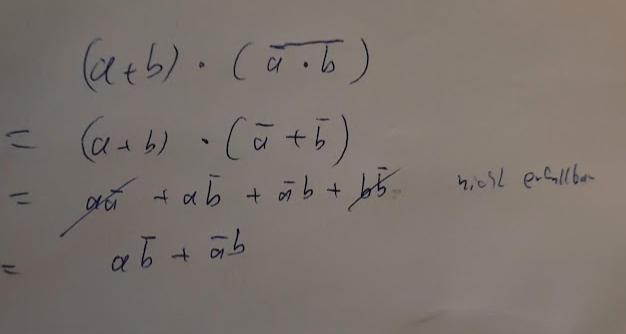 (a+b) · (a̅ ̅·̅ ̅b̅)
= (a+b) · (a̅ + b̅)
= aa̅ + ab̅ + a̅b + bb̅ nicht erfüllbar
= ab̅ + a̅b